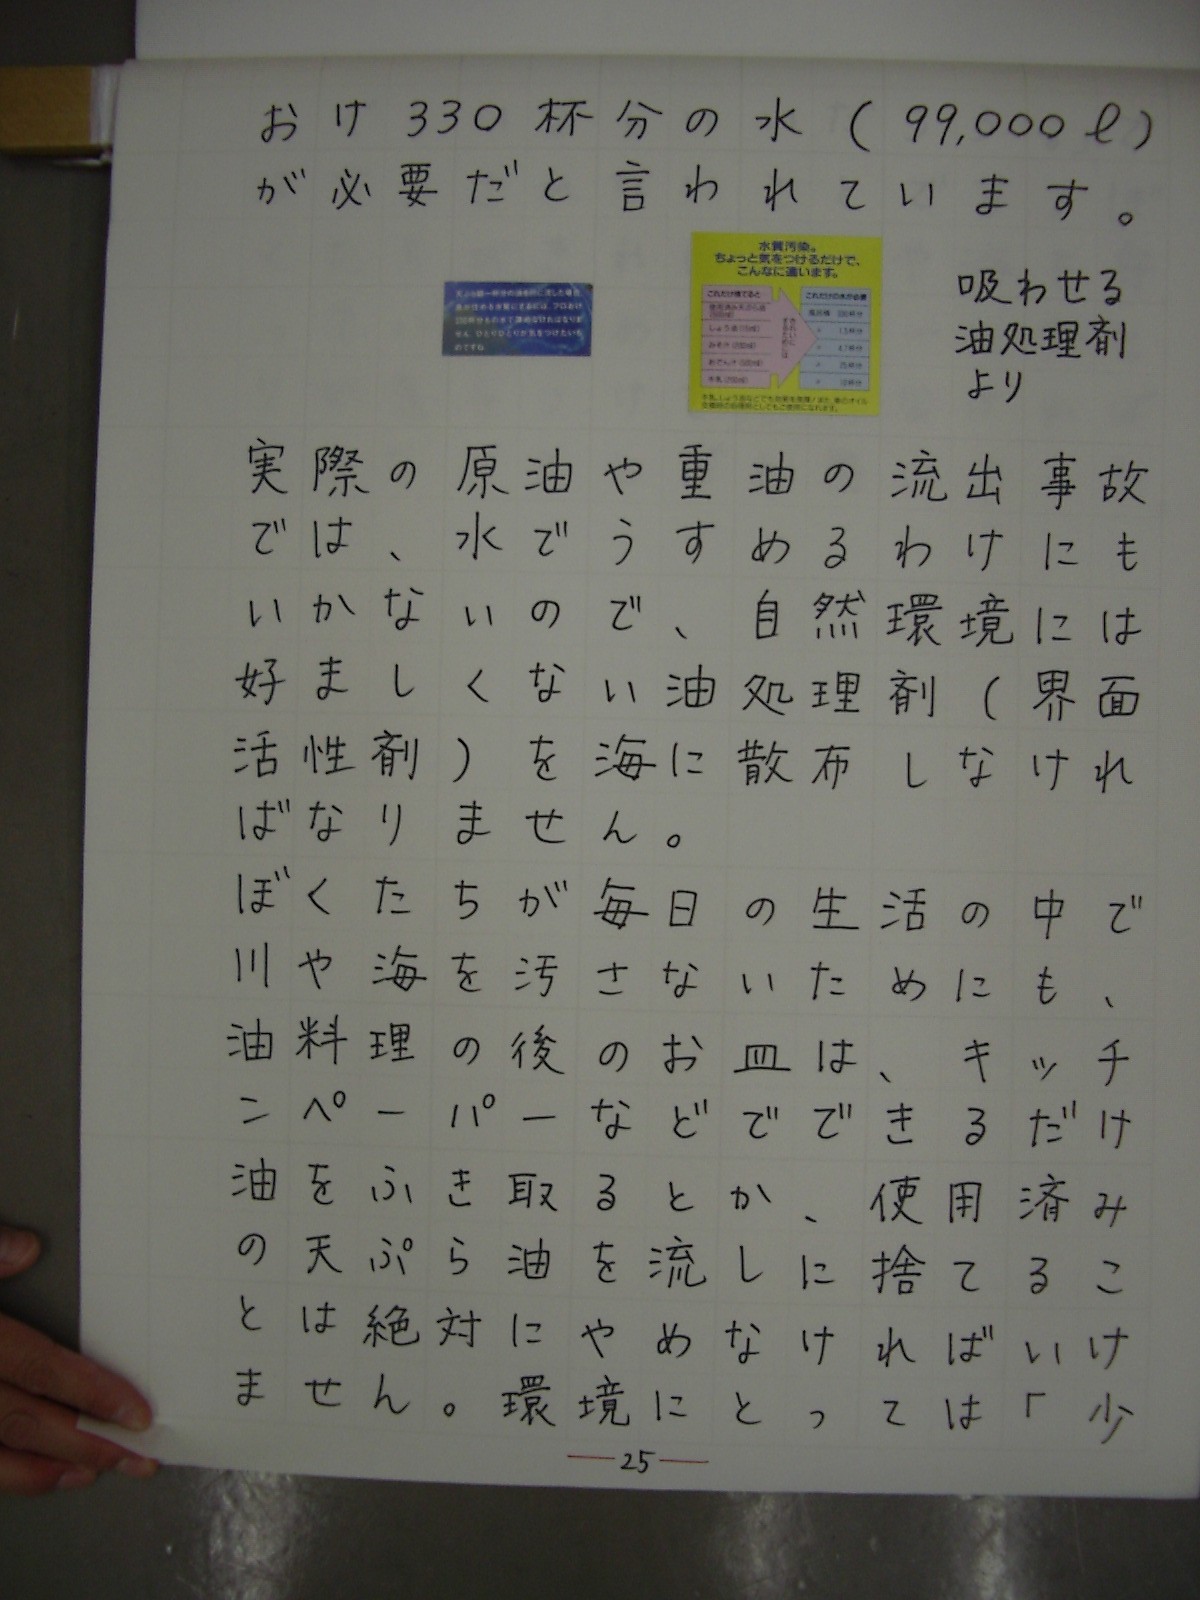 おけ330杯分の水(99,000ℓ)
が必要だと言われています。
水質汚染。
ちょっと気をつけるだけで、
こんなに違います。
これだけ捨てると
これだけの水が必要
しょう油(15mℓ)
みそ汁(200mℓ)
おでん汁(500mℓ)
牛乳(200mℓ)
吸わせる
油処理剤
より
実際の原油や重油の流出事故
では、水でうすめるわけにも
いかないので、自然環境には
好ましくない油処理剤(界面
活性剤)を海に散布しなけれ
ばなりません。
ぼくたちが毎日の生活の中で
川や海を汚さないためにも、
油料理の後のお皿は、キッチ
ンペーパーなどでできるだけ
油をふき取るとか、使用済み
の天ぷら油を流しに捨てるこ
とは絶対にやめなければいけ
ません。環境にとっては「少
25